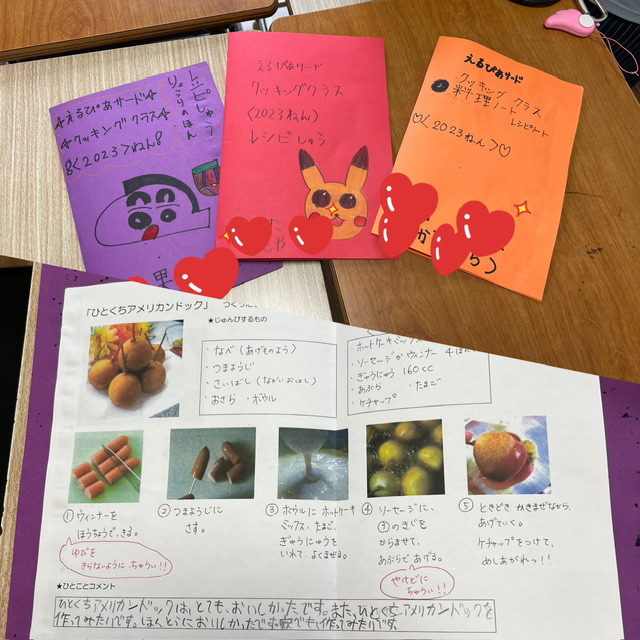 レシピしゅう
りょうりのほん
えるぴあサード
クッキングクラス
<2023>ねん
えるぴあサード
クッキングクラス
<2023ねん>
レシピしゅう
えるぴあサード
クッキングクラス
料理ノート
レシピノート
♡<2023ねん>♡
「ひとくちアメリカンドック」
★じゅんびするもの
・なべ(あげものよう)
・つまようじ
・さいばし(ながいおはし)
・おさら ・ボウル
・ホットケーキミックス
・ソーセージかウィンナー 4
・ぎゅうにゅう 160cc
・あぶら ・たまご
・ケチャップ
①ウィンナーを
ほうちょうで、きる。
ゆびを
きらないように、ちゅうい!!
②つまようじに
さす。
③ボウルに ホットケーキ
ミックス・たまご、
ぎゅうにゅうを
いれて、よくまぜる。
④ソーセージに、
③のきじを
からませて、
あぶらで、あげる。
やけどに
ちゅうい!!
⑤ときどき かきまぜながら、
あげていく。
ケチャップをつけて、
めしあがれっ!!
★ひとことコメント
ひとくちアメリカンドックは、とても、おいしかったです。また、ひとくちアメリカンドックを
作ってみたいです。ほんとうにおいしかったです家でも、作ってみたいです